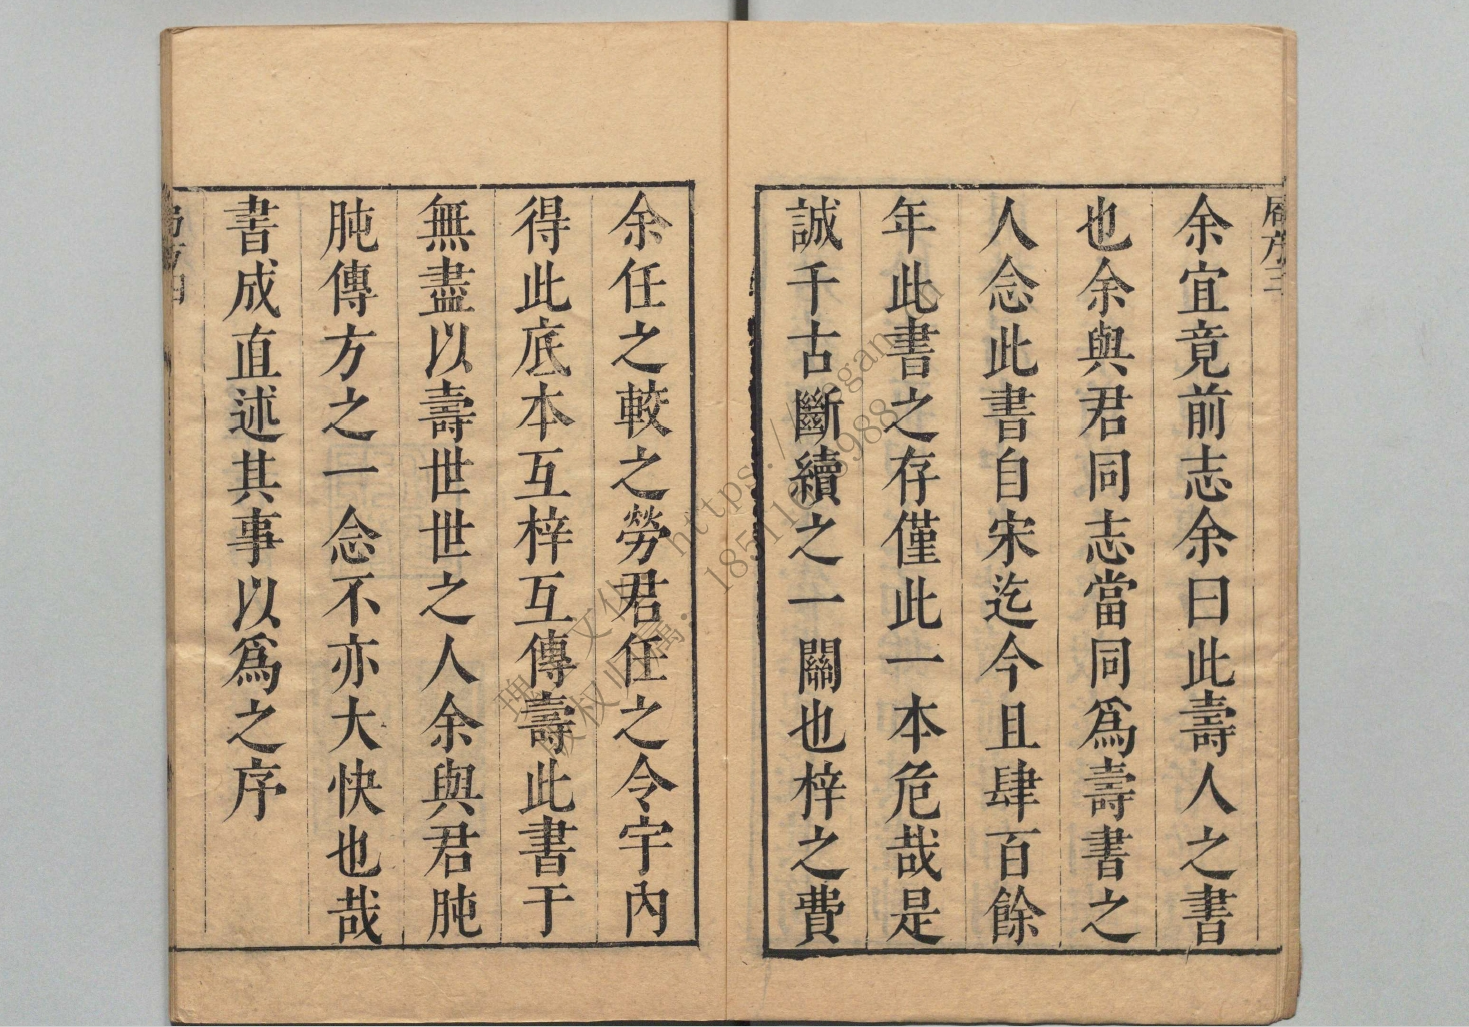 局方三
余宜竟前志余曰此壽人之書
也余與君同志當同爲壽書之
人念此書自宋迄今且肆百餘
年此書之存僅此一本危哉是
誠千古斷續之一關也梓之費
余任之較之勞君任之令宇內
得此底本互梓互傳壽此書于
無盡以壽世世之人余與君肫
肫傳方之一念不亦大快也哉
書成直述其事以爲之序